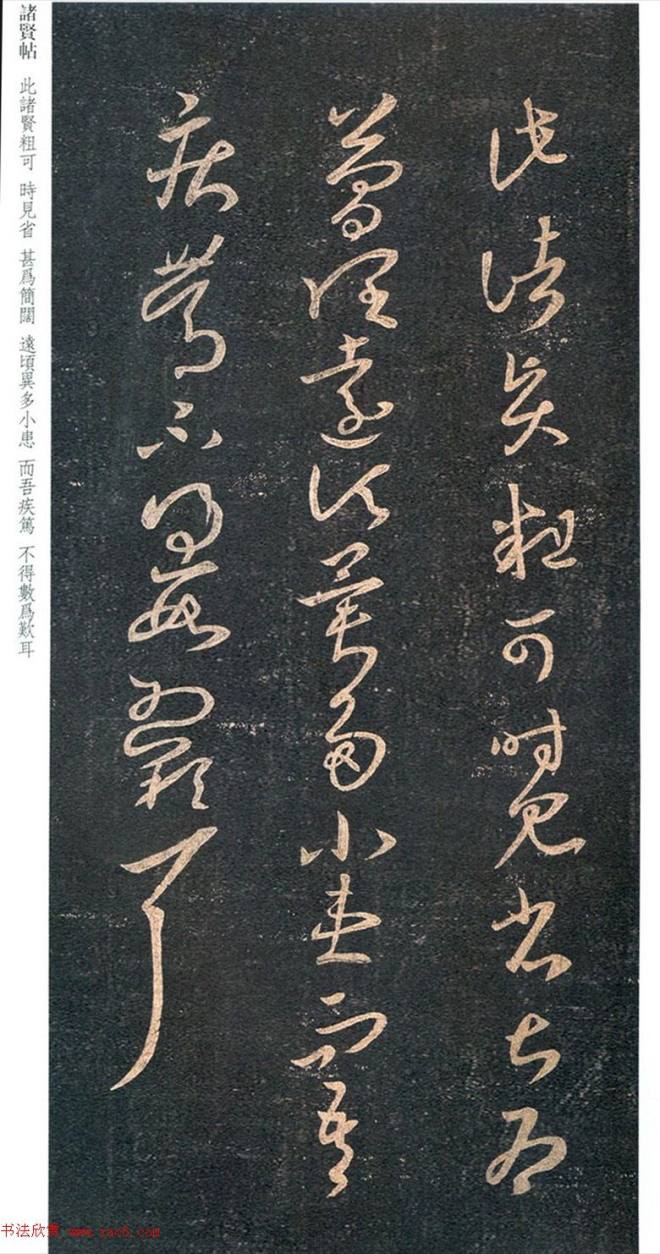 此諸賢粗可時見省甚為
簡闊遠頃異多小患而吾
疾篤不得數為歎耳
諸賢帖 此諸賢粗可 時見省 甚爲簡闊 遠頃異多小患 而吾疾篤 不得數爲歎耳
书法欣赏 www.zac6.com